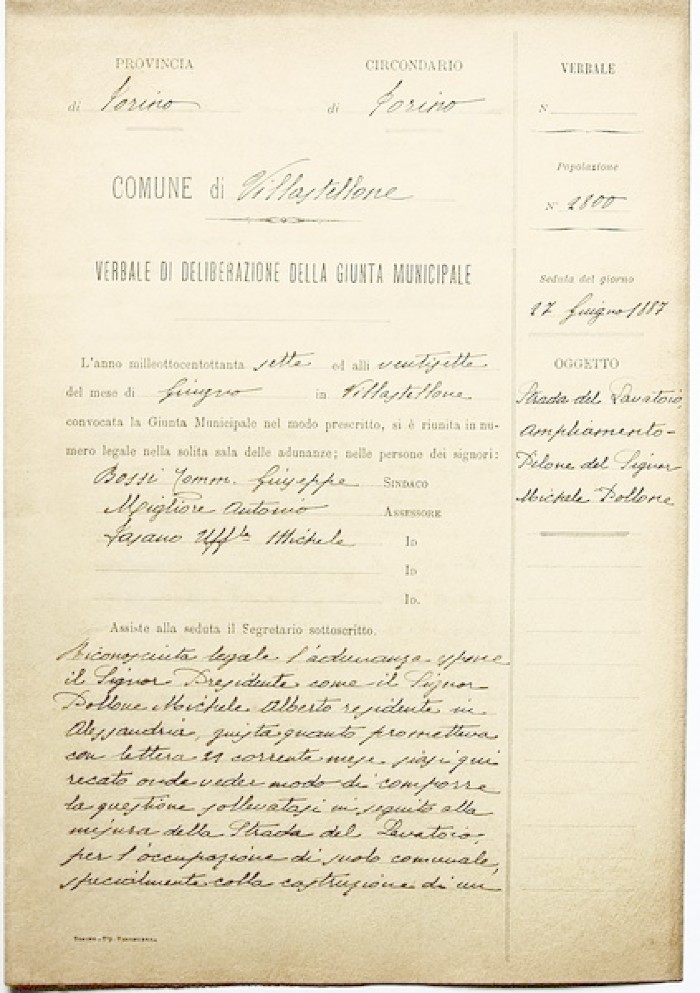 PROVINCIA
di Torino
CIRCONDARIO
di Torino
COMUNE di Villastellone
VERBALE DI DELIBERAZIONE DELLA GIUNTA MUNICIPALE
L'anno milleottocentottanta sette ed alli ventisette
del mese di Giugno in Villastellone
convocata la Giunta Municipale nel modo prescritto, si è riunita in nu-
mero legale nella solita sala delle adunanze; nelle persone dei signori:
Bossi Comm. Giuseppe SINDACO
Migliore Antonio ASSESSORE
Fasano Uff.le Michele ID
ID
ID.
Assiste alla seduta il Segretario sottoscritto.
Riconosciuta legale l'adunanza espone
il Signor Presidente come il Signor
Pollone Michele Alberto residente in
Alessandria, giusta quanto prometteva
con lettera 21 corrente mese siasi qui
recato onde veder modo di comporre
la questione sollevatasi in seguito alla
misura della Strada del Lavatoio,
per l'occupazione di suolo comunale,
specialmente colla costruzione di un
VERBALE
N
Popolazione
N° 2800
Seduta del giorno
27 Giugno 1887
OGGETTO
Strada del Lavatoio,
Ampliamento-
Pilone del Signor
Michele Pollone